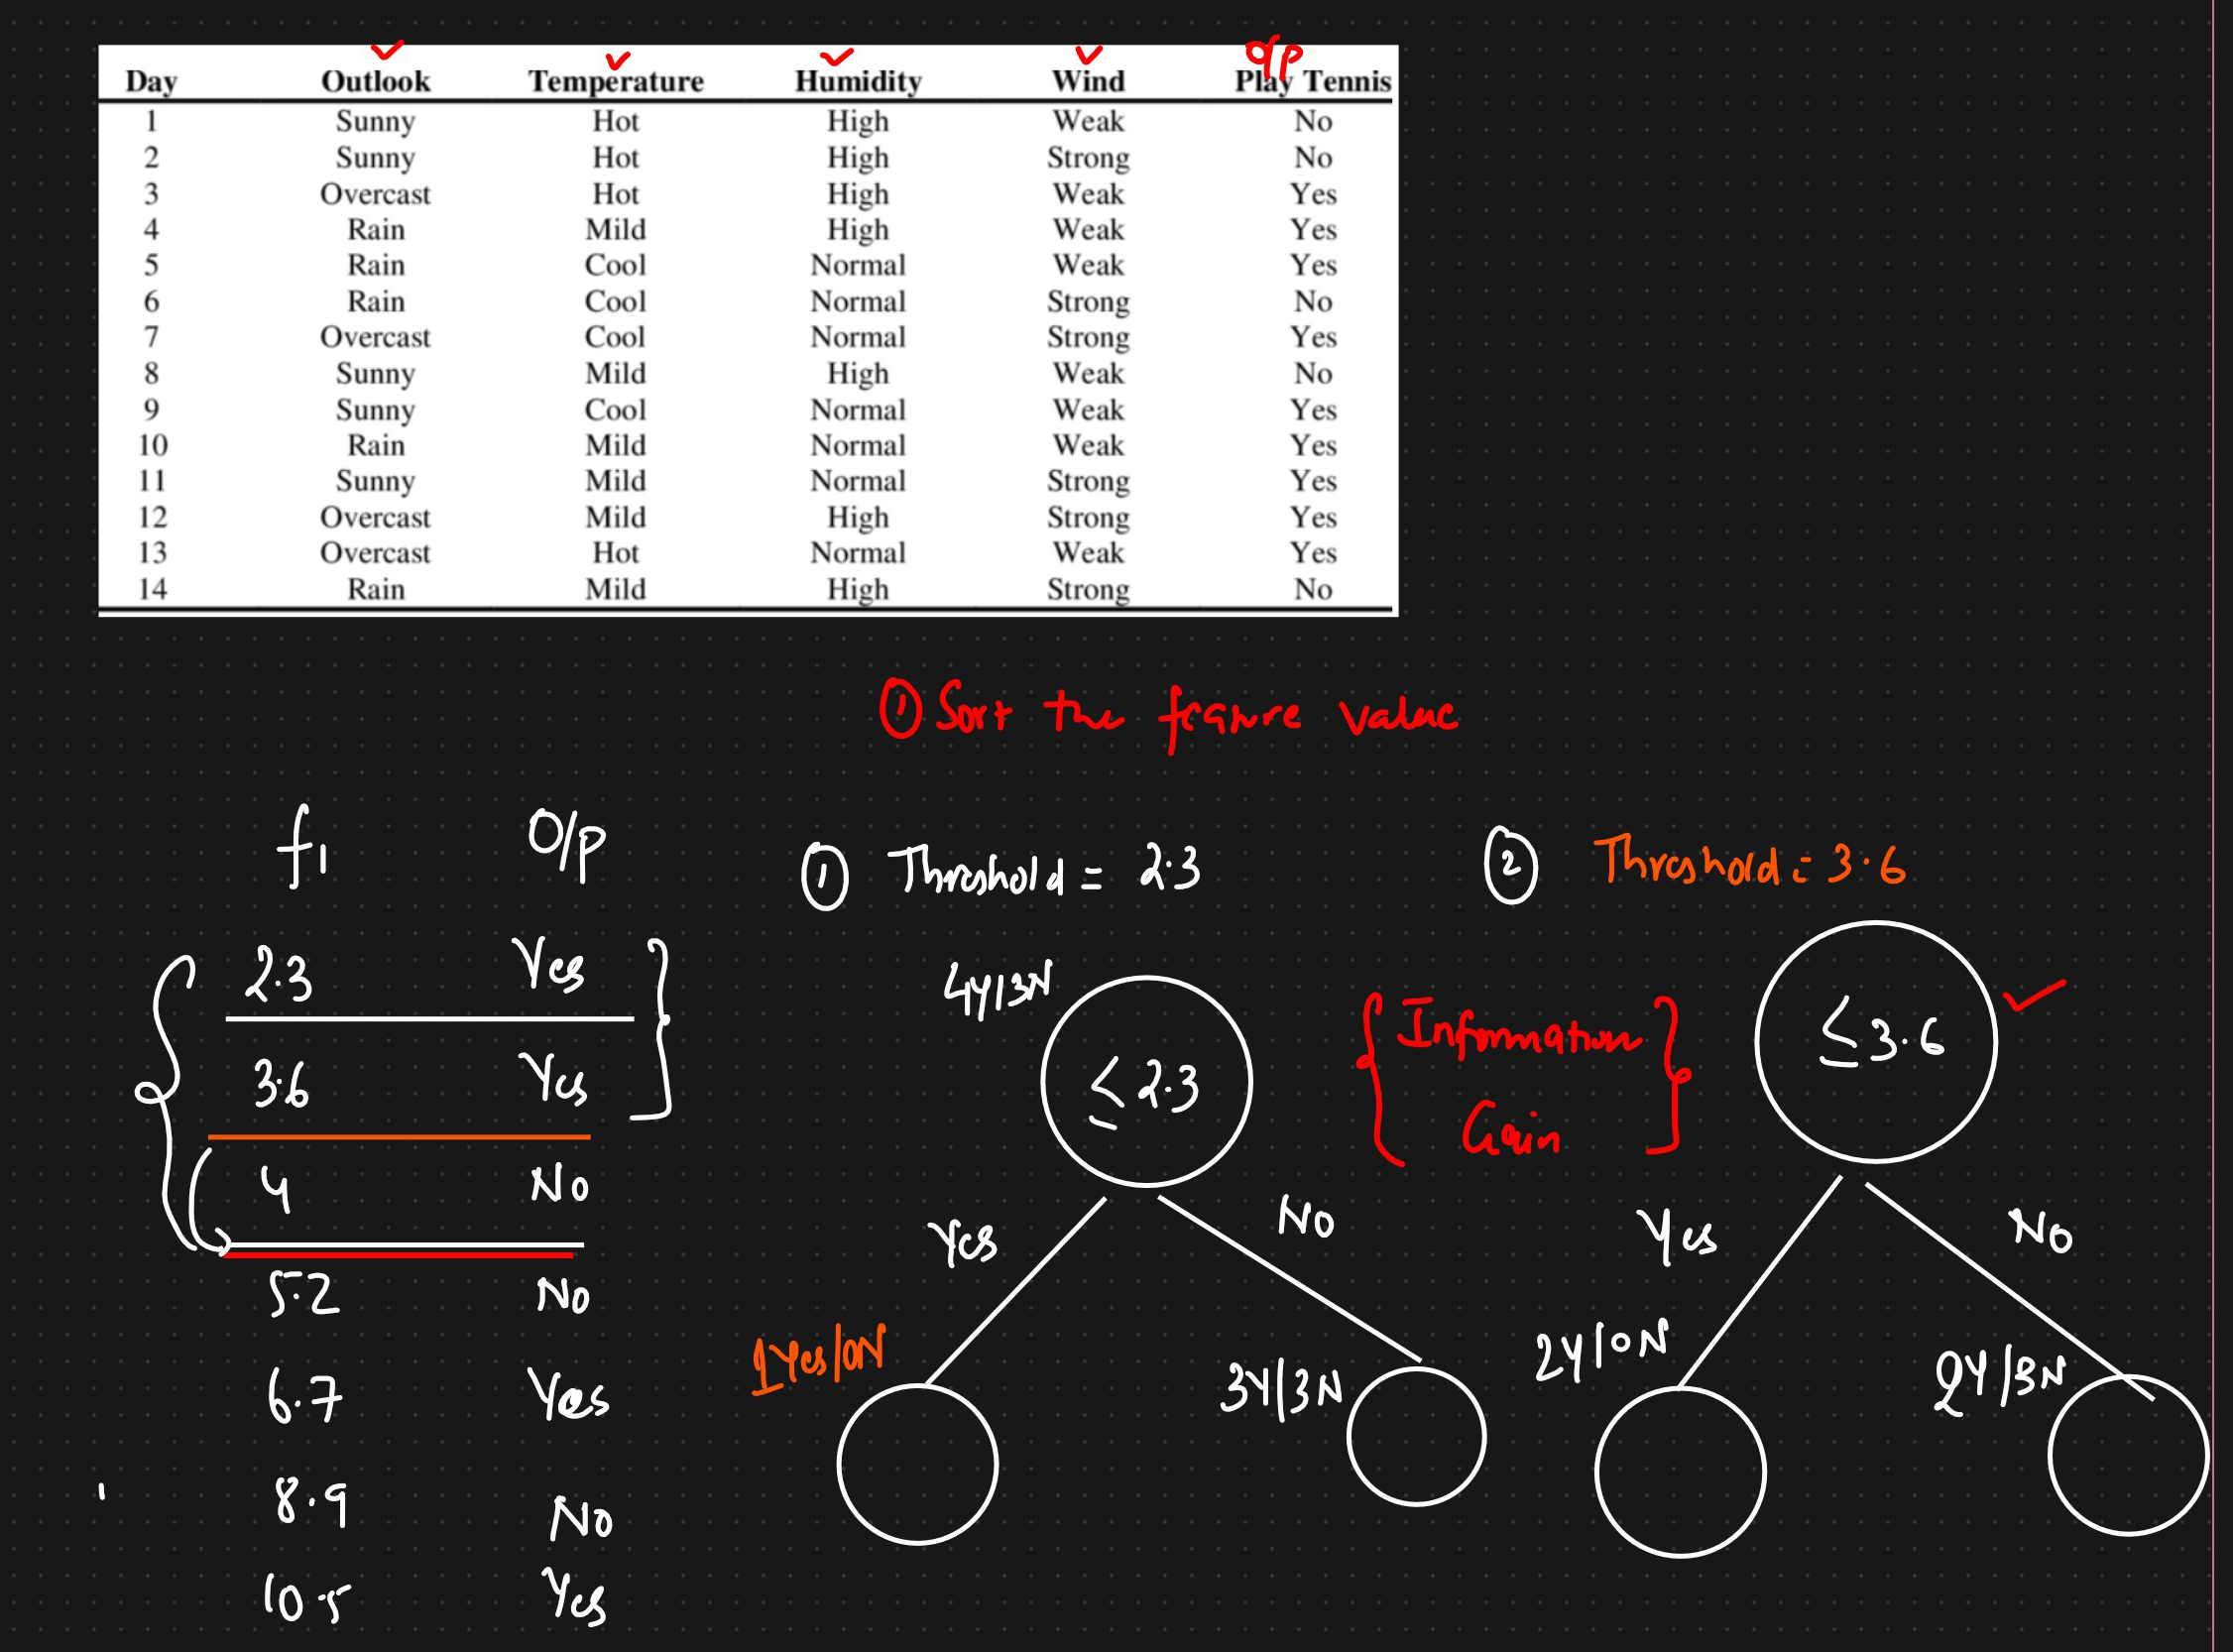 O/p
Day Outlook Temperature Humidity Wind Play Tennis
1 Sunny Hot High Weak No
2 Sunny Hot High Strong No
3 Overcast Hot High Weak Yes
4 Rain Mild High Weak Yes
5 Rain Cool Normal Weak Yes
6 Rain Cool Normal Strong No
7 Overcast Cool Normal Strong Yes
8 Sunny Mild High Weak No
9 Sunny Cool Normal Weak Yes
10 Rain Mild Normal Weak Yes
11 Sunny Mild Normal Strong Yes
12 Overcast Mild High Strong Yes
13 Overcast Hot Normal Weak Yes
14 Rain Mild High Strong No
① Sort the feature value
f1 O/p
2.3 Yes
3.6 Yes
4 No
5.2 No
6.7 Yes
8.9 No
10.5 Yes
① Threshold = 2.3
4Y|3N
≤ 2.3
Yes No
1Yes/0N 3Y|3N
{Information
Gain}
② Threshold = 3.6
≤ 3.6
Yes No
2Y|0N 2Y/3N